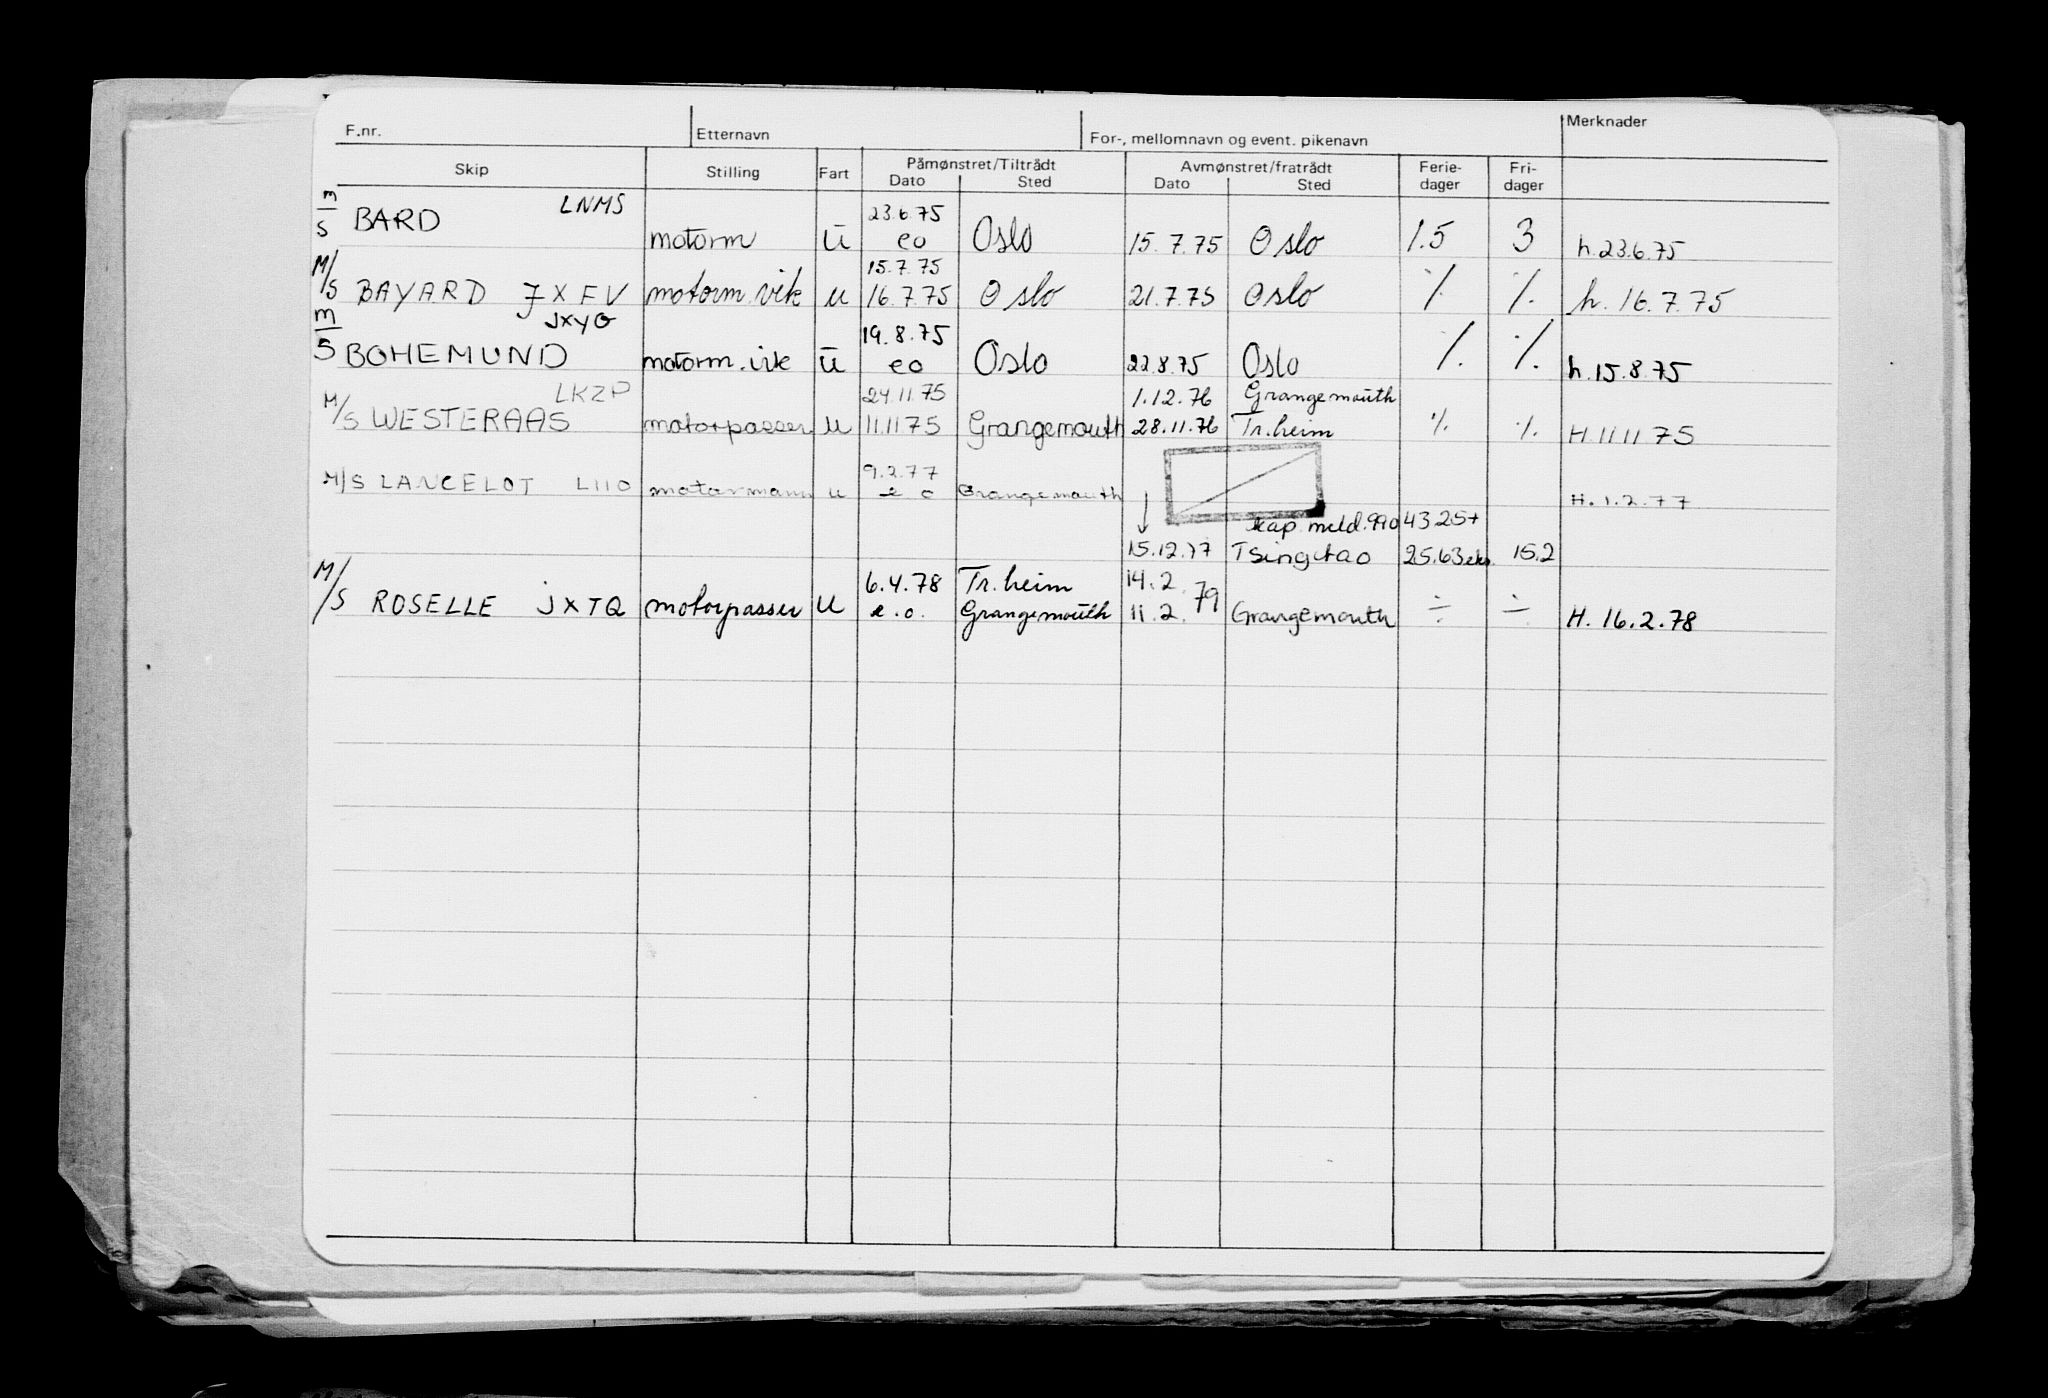 F.nr. Etternavn For-, mellomnavn og event. pikenavn Merknader
Skip Stilling Fart Påmønstret/Tiltrådt Avmønstret/fratrådt Ferie- Fri-
Dato Sted Dato Sted dager dager
M/S BARD LNMS motorm u 23.6.75 eo Oslo 15.7.75 Oslo 1.5 3 h.23.6.75
15.7.75
M/S BAYARD JXFV motorm.vik u 16.7.75 Oslo 21.7.75 Oslo % % h.16.7.75
JXYG 19.8.75
M/S BOHEMUND motorm.vik u eo Oslo 22.8.75 Oslo % % h.15.8.75
LKZP 24.11.75 1.12.76 Grangemouth
M/S WESTERAAS motorpasser u 11.11.75 Grangemouth 28.11.76 Tr.heim % % H.11.11.75
9.2.77
M/S LANCELOT LIIO motormann u eo Grangemouth H.1.2.77
kap. meld. 43.25+
15.12.77 Tsingtao 25.63 eks. 15.2
6.4.78 Tr.heim 14.2.79
M/S ROSELLE JXTQ motorpasser u e.o. Grangemouth 11.2. Grangemouth ÷ ÷ H. 16.2.78